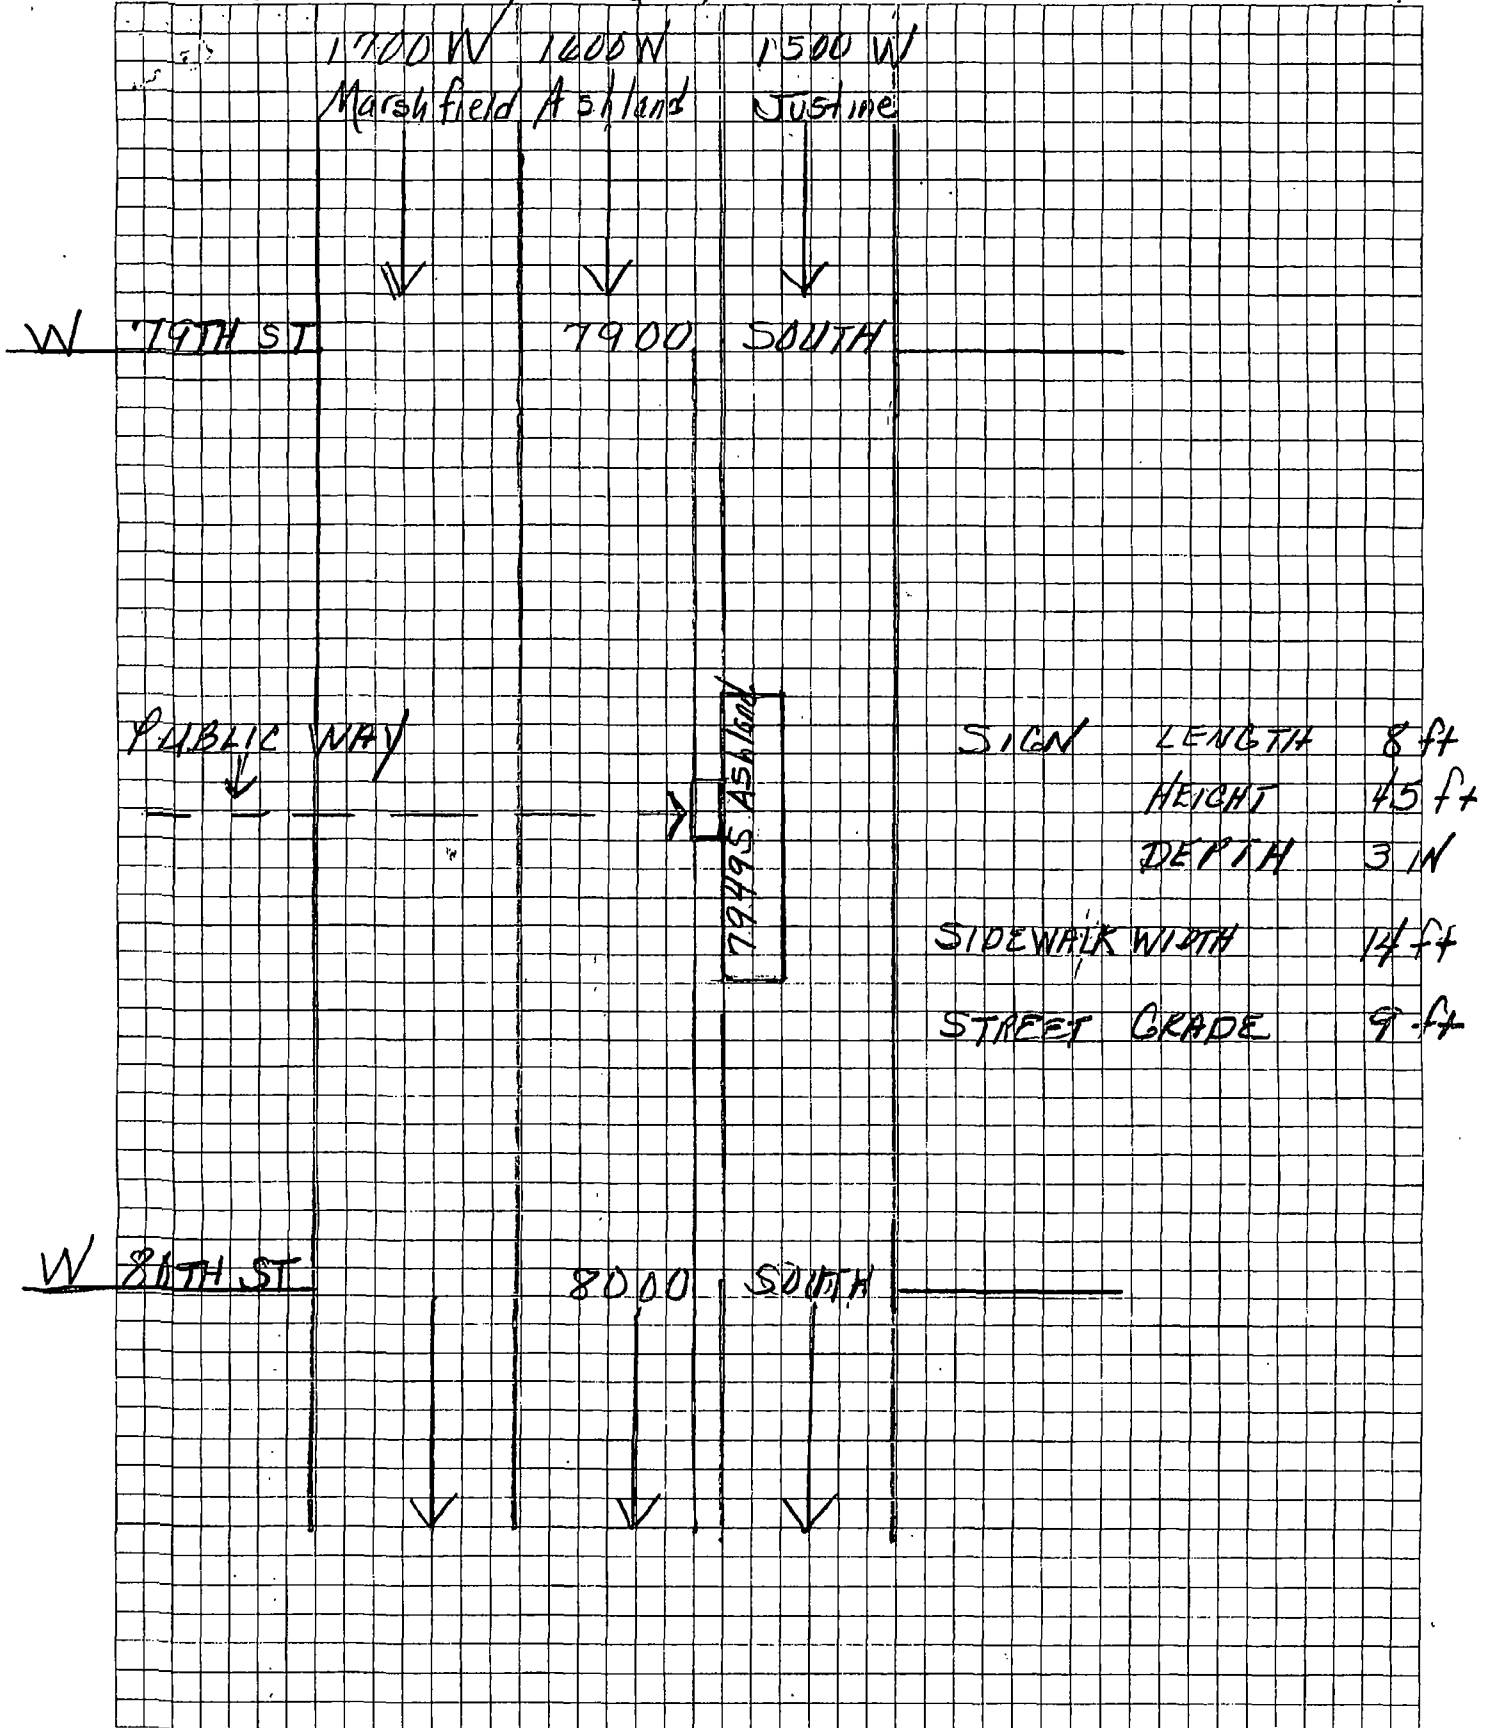 1700 W 1600 W 1500 W
Marshfield Ashland Justine
W 79TH ST 7900 SOUTH
7949 S Ashland
PUBLIC WAY
SIGN LENGTH 8 ft
HEIGHT 4.5 ft
DEPTH 3 IN
SIDEWALK WIDTH 14 ft
STREET GRADE 9 ft
W 80TH ST 8000 SOUTH